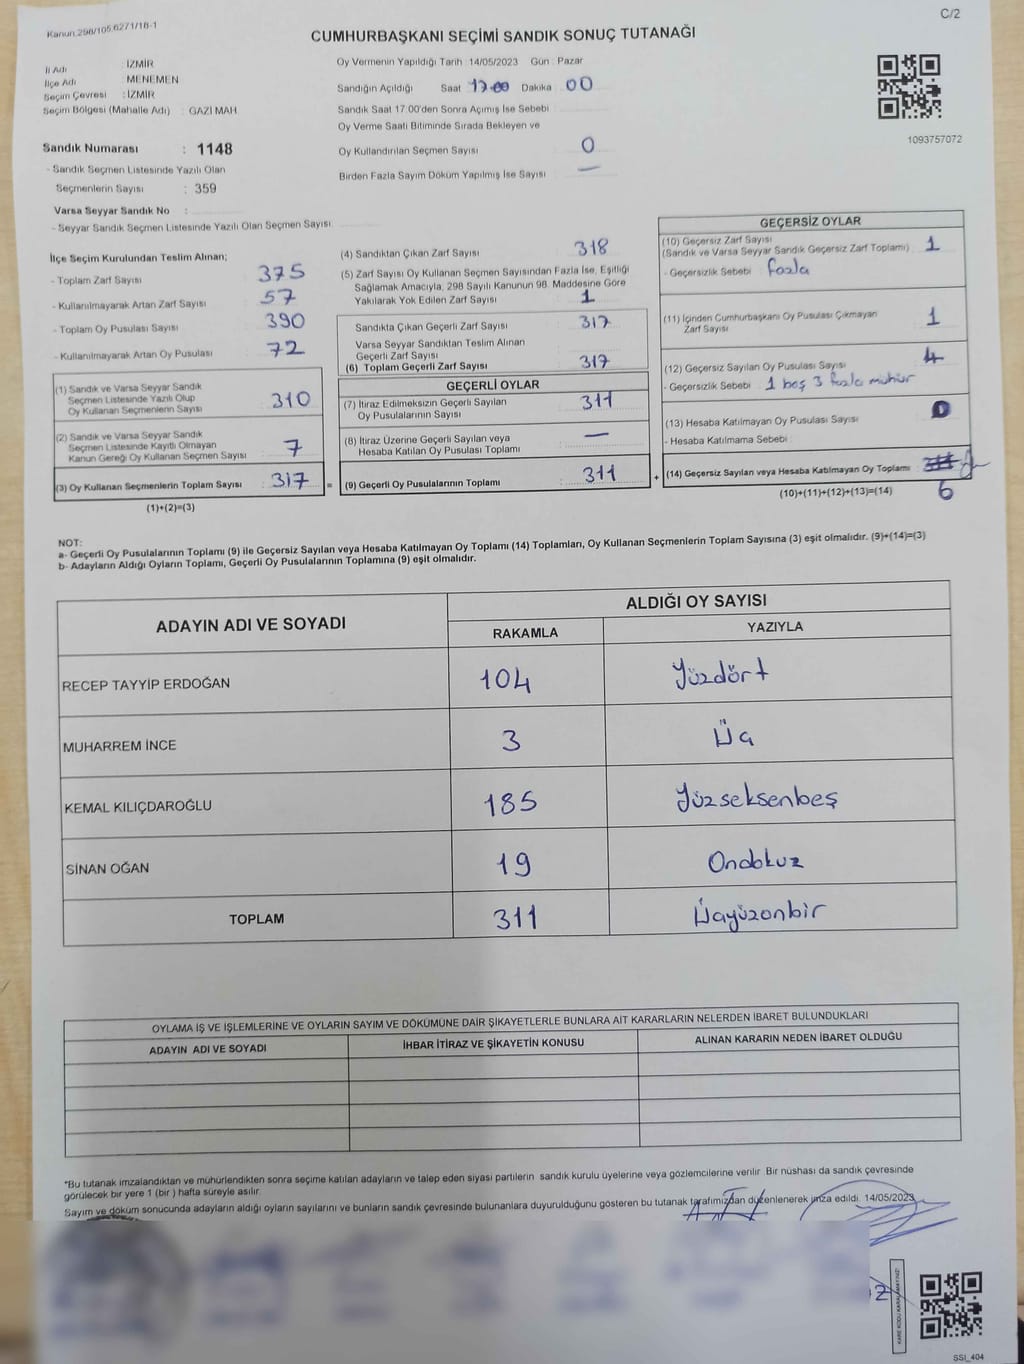 Kanun.298/105,6271/18-1
C/2
CUMHURBAŞKANI SEÇİMİ SANDIK SONUÇ TUTANAĞI
İl Adı : İZMİR
İlçe Adı : MENEMEN
Seçim Çevresi : İZMİR
Seçim Bölgesi (Mahalle Adı) : GAZİ MAH
Oy Vermenin Yapıldığı Tarih : 14/05/2023 Gün : Pazar
Sandığın Açıldığı Saat 17:00 Dakika 00
Sandık Saat 17:00'den Sonra Açımış İse Sebebi
Oy Verme Saati Bitiminde Sırada Bekleyen ve
Oy Kullandırılan Seçmen Sayısı 0
Birden Fazla Sayım Döküm Yapılmış İse Sayısı —
1093757072
Sandık Numarası : 1148
- Sandık Seçmen Listesinde Yazılı Olan
Seçmenlerin Sayısı : 359
Varsa Seyyar Sandık No :
- Seyyar Sandık Seçmen Listesinde Yazılı Olan Seçmen Sayısı
İlçe Seçim Kurulundan Teslim Alınan;
- Toplam Zarf Sayısı 375
- Kullanılmayarak Artan Zarf Sayısı 57
- Toplam Oy Pusulası Sayısı 390
- Kullanılmayarak Artan Oy Pusulası 72
(1) Sandık ve Varsa Seyyar Sandık
Seçmen Listesinde Yazılı Olup
Oy Kullanan Seçmenlerin Sayısı 310
(2) Sandık ve Varsa Seyyar Sandık
Seçmen Listesinde Kayıtlı Olmayan
Kanun Gereği Oy Kullanan Seçmen Sayısı 7
(3) Oy Kullanan Seçmenlerin Toplam Sayısı : 317 =
(1)+(2)=(3)
(4) Sandıktan Çıkan Zarf Sayısı 318
(5) Zarf Sayısı Oy Kullanan Seçmen Sayısından Fazla İse, Eşitliği
Sağlamak Amacıyla, 298 Sayılı Kanunun 98. Maddesine Göre
Yakılarak Yok Edilen Zarf Sayısı 1
Sandıkta Çıkan Geçerli Zarf Sayısı 317
Varsa Seyyar Sandıktan Teslim Alınan
Geçerli Zarf Sayısı
(6) Toplam Geçerli Zarf Sayısı 317
GEÇERLİ OYLAR
(7) İtiraz Edilmeksizin Geçerli Sayılan
Oy Pusulalarının Sayısı 311
(8) İtiraz Üzerine Geçerli Sayılan veya
Hesaba Katılan Oy Pusulası Toplamı —
(9) Geçerli Oy Pusulalarının Toplamı 311 +
GEÇERSİZ OYLAR
(10) Geçersiz Zarf Sayısı
(Sandık ve Varsa Seyyar Sandık Geçersiz Zarf Toplamı) 1
- Geçersizlik Sebebi fazla
(11) İçinden Cumhurbaşkanı Oy Pusulası Çıkmayan
Zarf Sayısı 1
(12) Geçersiz Sayılan Oy Pusulası Sayısı 4
- Geçersizlik Sebebi : 1 boş 3 fazla mühür
(13) Hesaba Katılmayan Oy Pusulası Sayısı 0
- Hesaba Katılmama Sebebi :
(14) Geçersiz Sayılan veya Hesaba Katılmayan Oy Toplamı :
(10)+(11)+(12)+(13)=(14) 6
NOT:
a- Geçerli Oy Pusulalarının Toplamı (9) ile Geçersiz Sayılan veya Hesaba Katılmayan Oy Toplamı (14) Toplamları, Oy Kullanan Seçmenlerin Toplam Sayısına (3) eşit olmalıdır. (9)+(14)=(3)
b- Adayların Aldığı Oyların Toplamı, Geçerli Oy Pusulalarının Toplamına (9) eşit olmalıdır.
ADAYIN ADI VE SOYADI
ALDIĞI OY SAYISI
RAKAMLA YAZIYLA
RECEP TAYYİP ERDOĞAN 104 Yüzdört
MUHARREM İNCE 3 Üç
KEMAL KILIÇDAROĞLU 185 Yüzseksenbeş
SİNAN OĞAN 19 Ondokuz
TOPLAM 311 Üçyüzonbir
OYLAMA İŞ VE İŞLEMLERİNE VE OYLARIN SAYIM VE DÖKÜMÜNE DAİR ŞİKAYETLERLE BUNLARA AİT KARARLARIN NELERDEN İBARET BULUNDUKLARI
ADAYIN ADI VE SOYADI İHBAR İTİRAZ VE ŞİKAYETİN KONUSU ALINAN KARARIN NEDEN İBARET OLDUĞU
*Bu tutanak imzalandıktan ve mühürlendikten sonra seçime katılan adayların ve talep eden siyasi partilerin sandık kurulu üyelerine veya gözlemcilerine verilir. Bir nüshası da sandık çevresinde
görülecek bir yere 1 (bir ) hafta süreyle asılır.
Sayım ve döküm sonucunda adayların aldığı oyların sayılarını ve bunların sandık çevresinde bulunanlara duyurulduğunu gösteren bu tutanak tarafımızdan düzenlenerek imza edildi. 14/05/2023
SSI_404